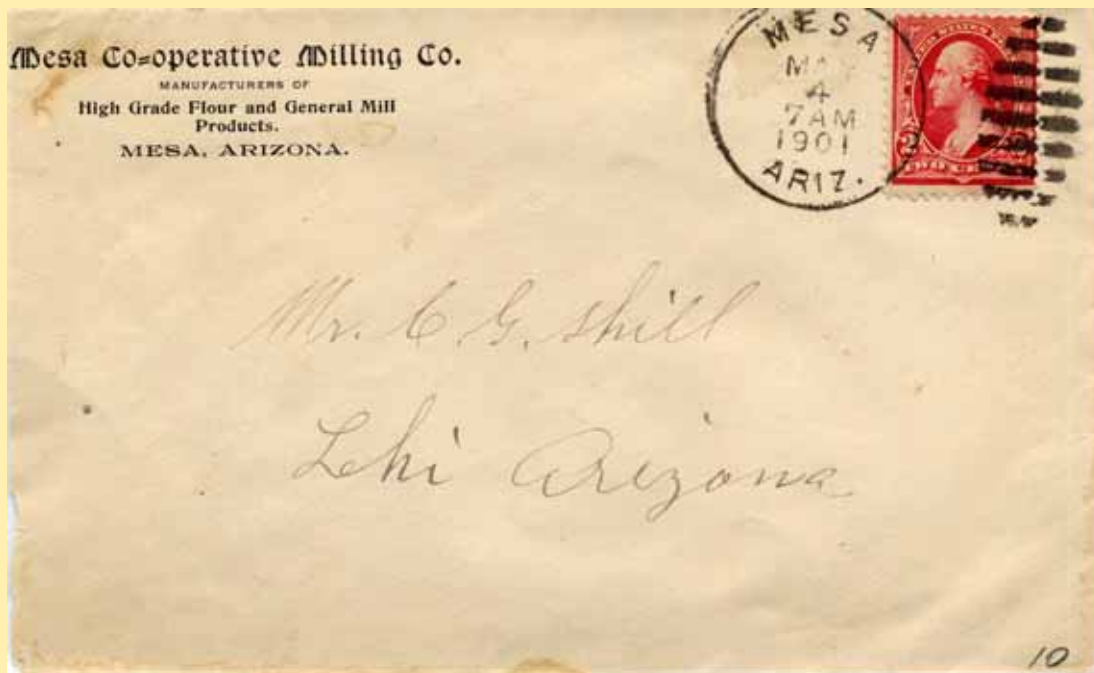 Mesa Co=operative Milling Co.
MANUFACTURERS OF
High Grade Flour and General Mill
Products.
MESA, ARIZONA.
MESA
4
7AM
1901
ARIZ.
2
Mr. C G. Shill
Lehi Arizona
10